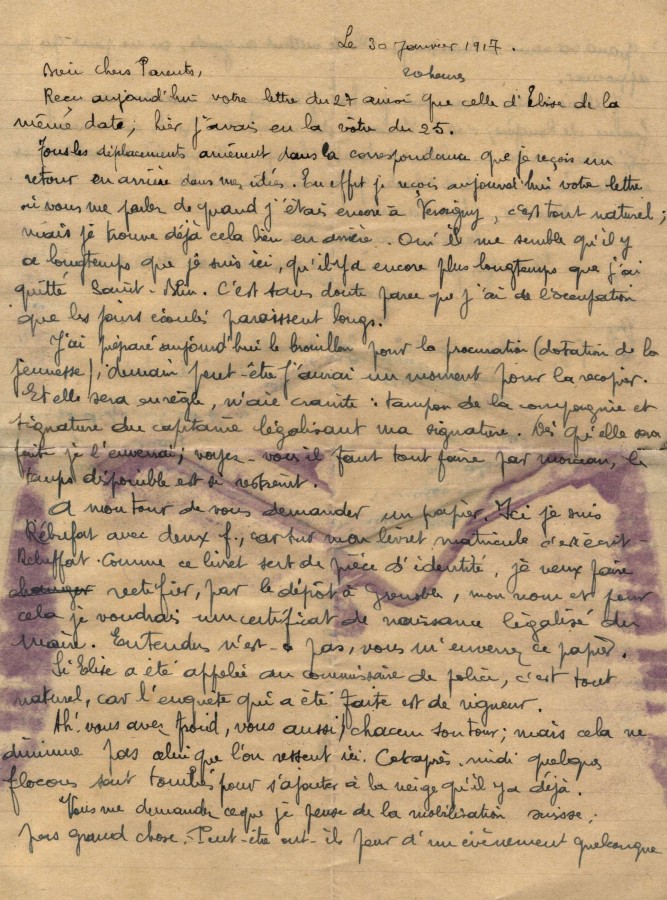 Le 30 Janvier 1917.
Mein chers Parents, 20 heures
Reçu aujourd'hui votre lettre du 27 ainsi que celle d'Elise de la
même date; hier j'avais eu la vôtre du 25.
Tous les déplacements amènent dans la correspondance que je reçois un
retour en arrière dans mes idées. En effet je reçois aujourd'hui votre lettre
où vous me parlez de quand j'étais encore à c'est tout naturel;
mais je trouve déjà cela bien en arrière. Oui il me semble qu'il y
a longtemps que je suis ici, qu'il y a encore plus longtemps que j'ai
quitté Saint-. C'est sans doute parce que j'ai de l'occupation
que les jours écoulés paraissent longs.
J'ai préparé aujourd'hui le brouillon pour la procuration (dotation de la
jeunesse), demain peut-être j'aurai un moment pour la recopier.
Et elle sera en règle, n'aie crainte : tampon de la compagnie et
signature du capitaine légalisant ma signature. Dès qu'elle sera
faite je l'enverrai; voyez-vous il faut tout faire par morceau, le
temps disponible est si restreint.
A mon tour de vous demander un papier. Ici je suis
Rébufat avec deux f, car sur mon livret matricule c'est écrit -
Rebuffat. Comme ce livret sert de pièce d'identité, je veux faire
changer rectifier, par le dépôt à Grenoble, mon nom et pour
cela je voudrais un certificat de naissance légalisé du
maire. Entendus n'est-ce pas, vous m'enverrez ce papier.
Si Elise a été appelée au commissaire de police, c'est tout
naturel, car l'enquête qui a été faite est de rigueur.
Ah! vous avez froid, vous aussi, chacun son tour; mais cela ne
diminue pas celui que l'on ressent ici. Cet après-midi quelques
flocons sont tombés pour s'ajouter à la neige qu'il y a déjà.
Vous me demandez ce que je pense de la mobilisation suisse;
pas grand chose. Peut-être ont-ils peur d'un évènement quelconque